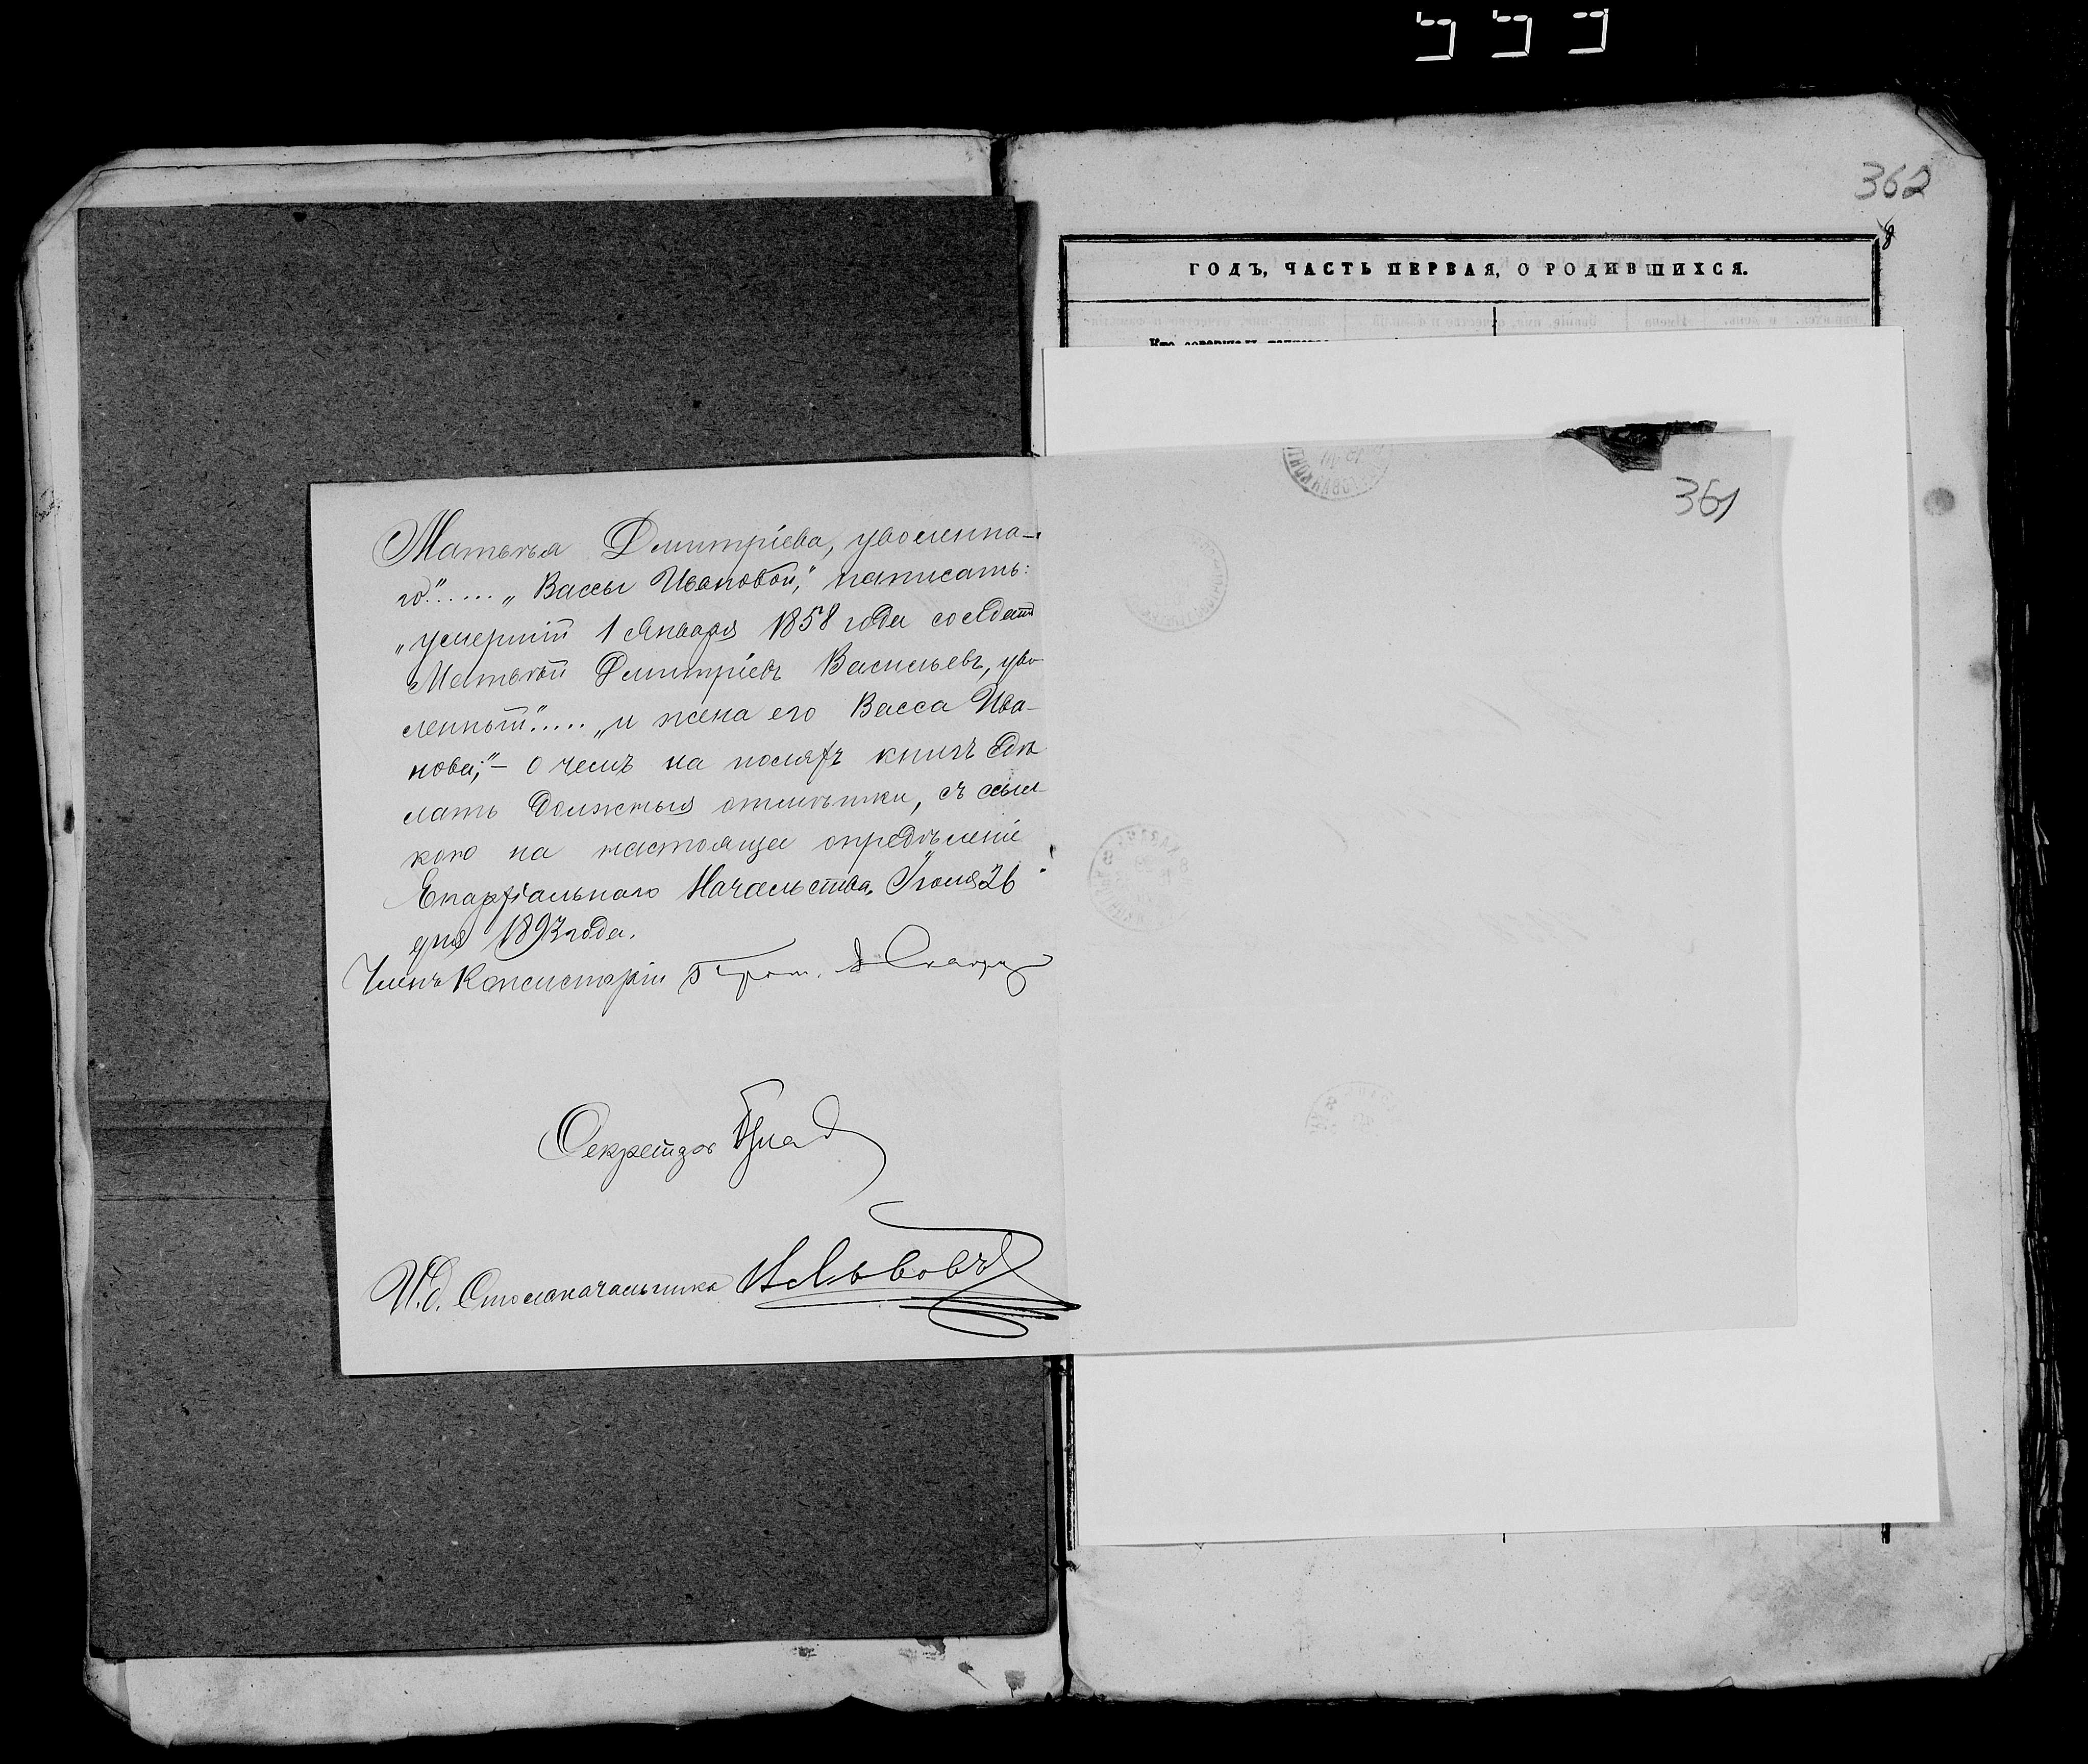 362
8
ГОДЪ, ЧАСТЬ ПЕРВАЯ, О РОДИВШИХСЯ.
361
Матвѣя Дмитріева, уволенна-
го"..... „Вассы Ивановой," написать:
„умершій 1 Января 1858 года солдатъ
Матвѣй Дмитріевъ Васильевъ, уво
ленный"..... „и жена его Васса Ива-
нова;"- о чемъ на поляхъ книгъ сдѣ
лать должныя отмѣтки, съ ссыл-
кою на настоящее опредѣленіе
Епархіальнаго Начальства. Іюля 26
дня 1893 года.
Членъ Консисторіи Прот.
Секретарь
И.д. Столоначальника Н Львовъ